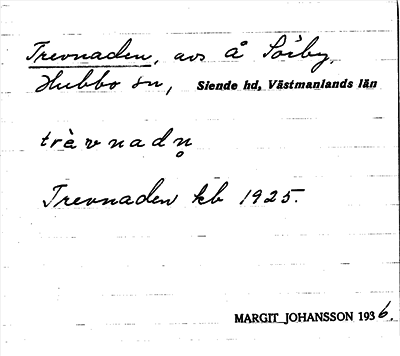 Trevnaden, avs å Sörby,
Hubbo sn, Siende hd, Västmanlands län
trèvnadn̥
Trevnaden kb 1925.
MARGIT JOHANSSON 1936.